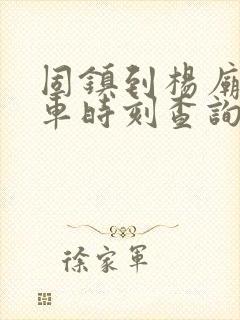 固鎮到楊廟
車時刻查詢
徐家軍